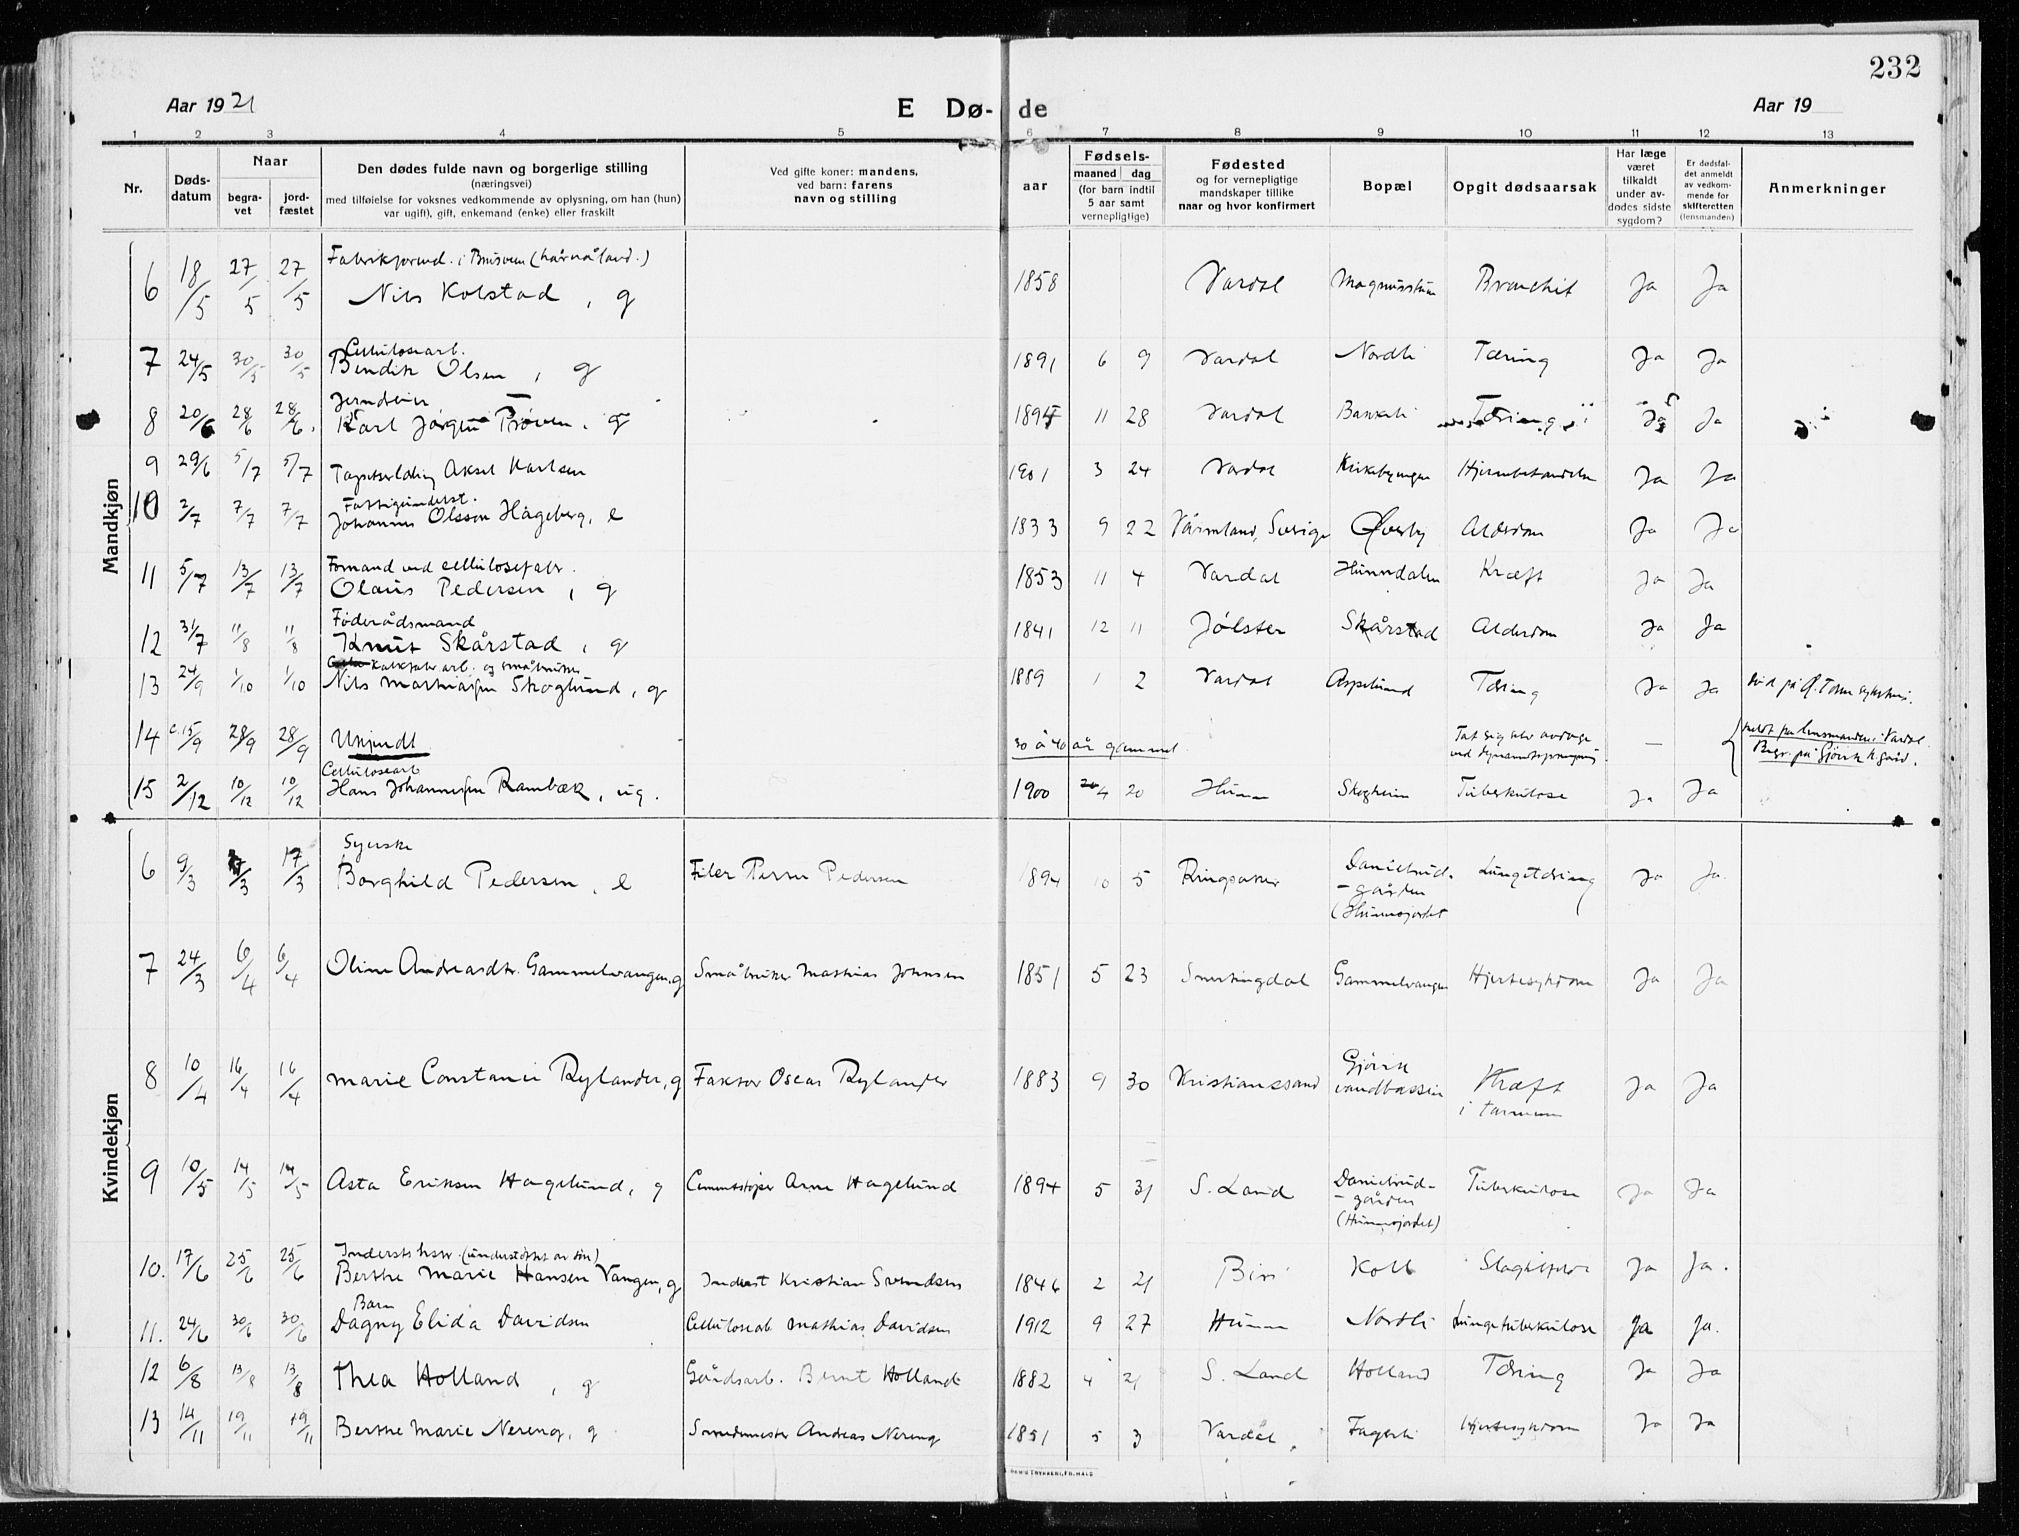 232
Aar 1921
E Dø-de
Aar 19
1 2 3 4 5 6 7 8 9 10 11 12 13
Nr.
Døds-
datum
Naar
begra-
vet
jord-
fæstet
Den dødes fulde navn og borgerlige stilling
(næringsvei)
med tilføielse for voksnes vedkommende av oplysning, om han (hun)
var ugift), gift, enkemand (enke) eller fraskilt
Ved gifte koner: mandens,
ved barn: farens
navn og stilling
aar
Fødsels-
maaned dag
(for barn indtil
5 aar samt
vernepligtige)
Fødested
og for vernepligtige
mandskaper tillike
naar og hvor konfirmert
Bopæl
Opgit dødsaarsak
Har læge
været
tilkaldt
under av-
dødes sidste
sygdom?
Er dødsfal-
det anmeldt
av vedkom-
mende for
skifteretten
(lensmanden)
Anmerkninger
Mandkjøn
Fabrikformd. i
6 18/5 27/5 27/5 Nils Kolstad, g 1858 Vardal Bronchit Ja Ja
Cellulosearb.
7 24/5 30/5 30/5 Bendik Olsen, g 1891 6 9 Vardal Nordli Tæring Ja Ja
8 20/6 28/6 28/6 Karl Jørgen Prøven, g 11 28 Vardal Bakkeli Tæring Ja Ja
9 29/6 5/7 5/7 Aksel Karlsen 1901 3 24 Vardal Kirkebyengen Ja Ja
10 2/7 7/7 7/7 Johannes Olsson Hågeberg, e 1833 9 22 Värmland, Sverige Øverby Alderdom Ja Ja
Formand ved cellulosefabr.
11 5/7 13/7 13/7 Olaus Pedersen, g 1853 11 4 Vardal Hunndalen Kræft Ja Ja
Føderådsmand
12 31/7 11/8 11/8 Knut Skårstad, g 1841 12 11 Jølster Skårstad Alderdom Ja Ja
Kalkfabr. arb. og småbruker
13 24/9 1/10 1/10 Nils Mathiassen Skoglund, g 1889 1 2 Vardal Aspelund Tæring Ja Ja
14 c. 15/9 28/9 28/9 Ukjendt 30 à 40 år gammel Tat sig selv avdage —
meldt fra lensmanden i Vardal
ved dynamitsprængning
Begr. på Gjøvik k.gård.
Cellulosearb
15 2/12 10/12 10/12 Hans Johannessen Rambæk, ug. 1900 4 20 Hunn Skogheim Tuberkulose Ja Ja
Kvindekjøn
Syerske
6 9/3 17/3 17/3 Borghild Pedersen, e Filer Petter Pedersen 1894 10 5 Ringsaker Danielrud-
-gården
(Hunnsjordet
Lungetæring Ja Ja
7 24/3 6/4 6/4 Oline Andreasdtr. Gammelvangen, g Småbruker Mathias Johnsen 1851 5 23 Snertingdal Gammelvangen Hjertesykdom Ja Ja
8 10/4 16/4 16/4 Marie Constance Rylander, g Faktor Oscar Rylander 1883 9 30 Kristianssand Gjøvik
vandbassin
Kræft
i tarmen
Ja Ja
9 10/5 14/5 14/5 Asta Eriksen Hagelund, g Cementstøper Arne Hagelund 1894 5 31 S. Land Danielrud-
-gården
(Hunnsjordet)
Tuberkulose Ja Ja
Inderstkone (understøttet av søn)
10. 17/6 25/6 25/6 Berthe Marie Hansen Vangen, g Inderst Kristian Svendsen 1846 2 21 Biri Koll Ja Ja.
Barn
11. 24/6 30/6 30/6 Dagny Elida Davidsen Cellulosearb Mathias Davidsen 1912 9 27 Hunn Nordli Lungetuberkulose Ja Ja.
12 6/8 13/8 13/8 Thea Holland, g Gårdsarb. Bernt Holland 1882 4 21 S. Land Holland Tæring Ja Ja
13 14/11 19/11 19/11 Berthe Marie Nereng, g Smedmester Andreas Nereng 1851 5 3 Vardal Fagerli Hjertesykdom Ja Ja